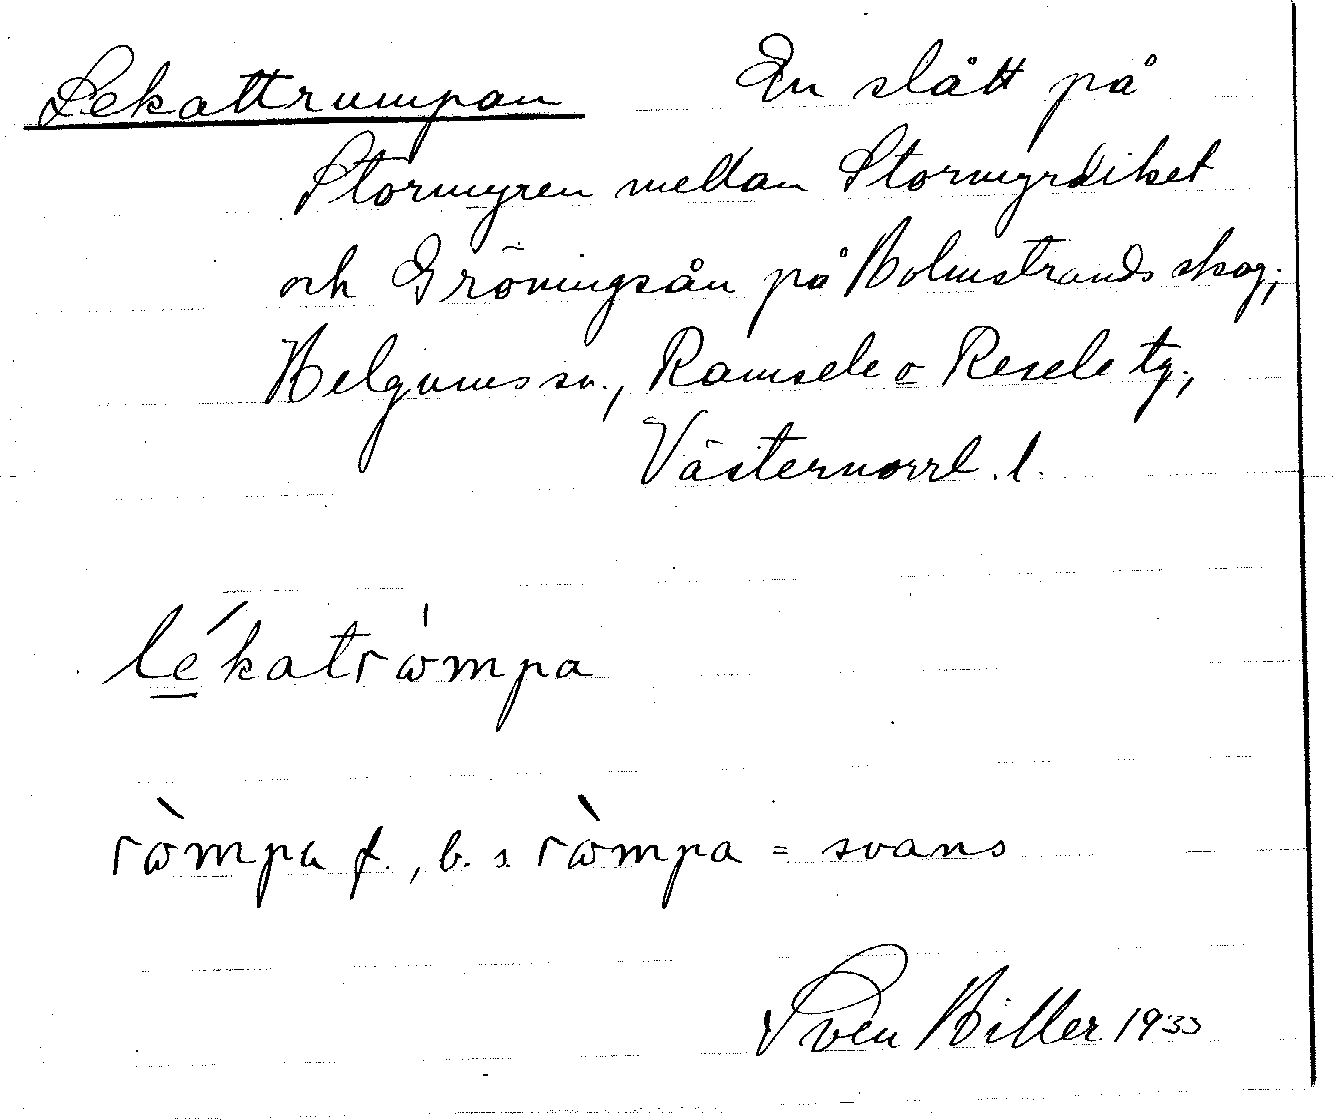 Lekattrumpan En slått på
Stormyren mellan Stormyrdiket
och Gröningsån på Holmstrands skog;
Helgums sn., Ramsele o Resele tg.,
Västernorrl. l.
lékatrωmpa
rὼmpa f., b. s. rὼmpa = svans
Sven Hiller 1933